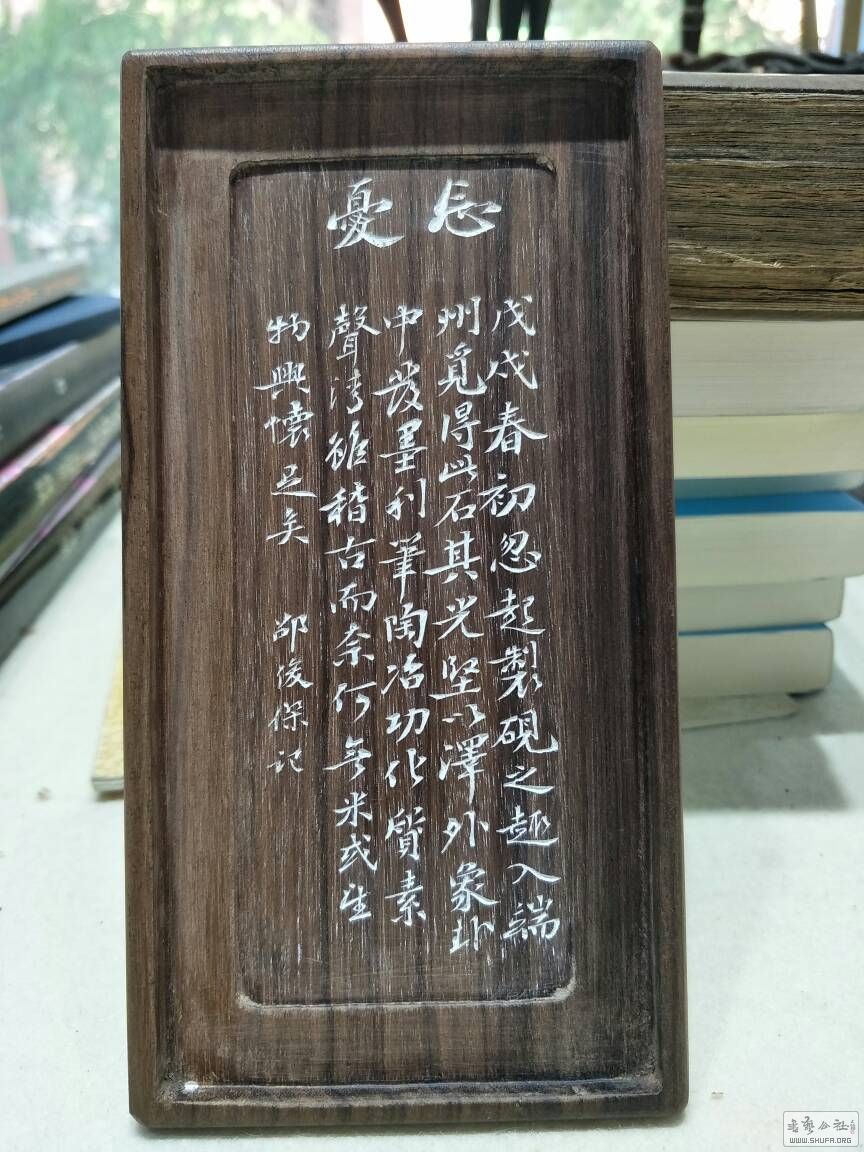 忘憂
戊戌春初忽起製硯之趣入端
州覓得此石其光堅以澤外象
中發墨利筆陶冶功化質素
聲清 稽古而奈何無米或
物興懷足矣
邵俊保記
书艺公社
WWW.SHUFA.ORG